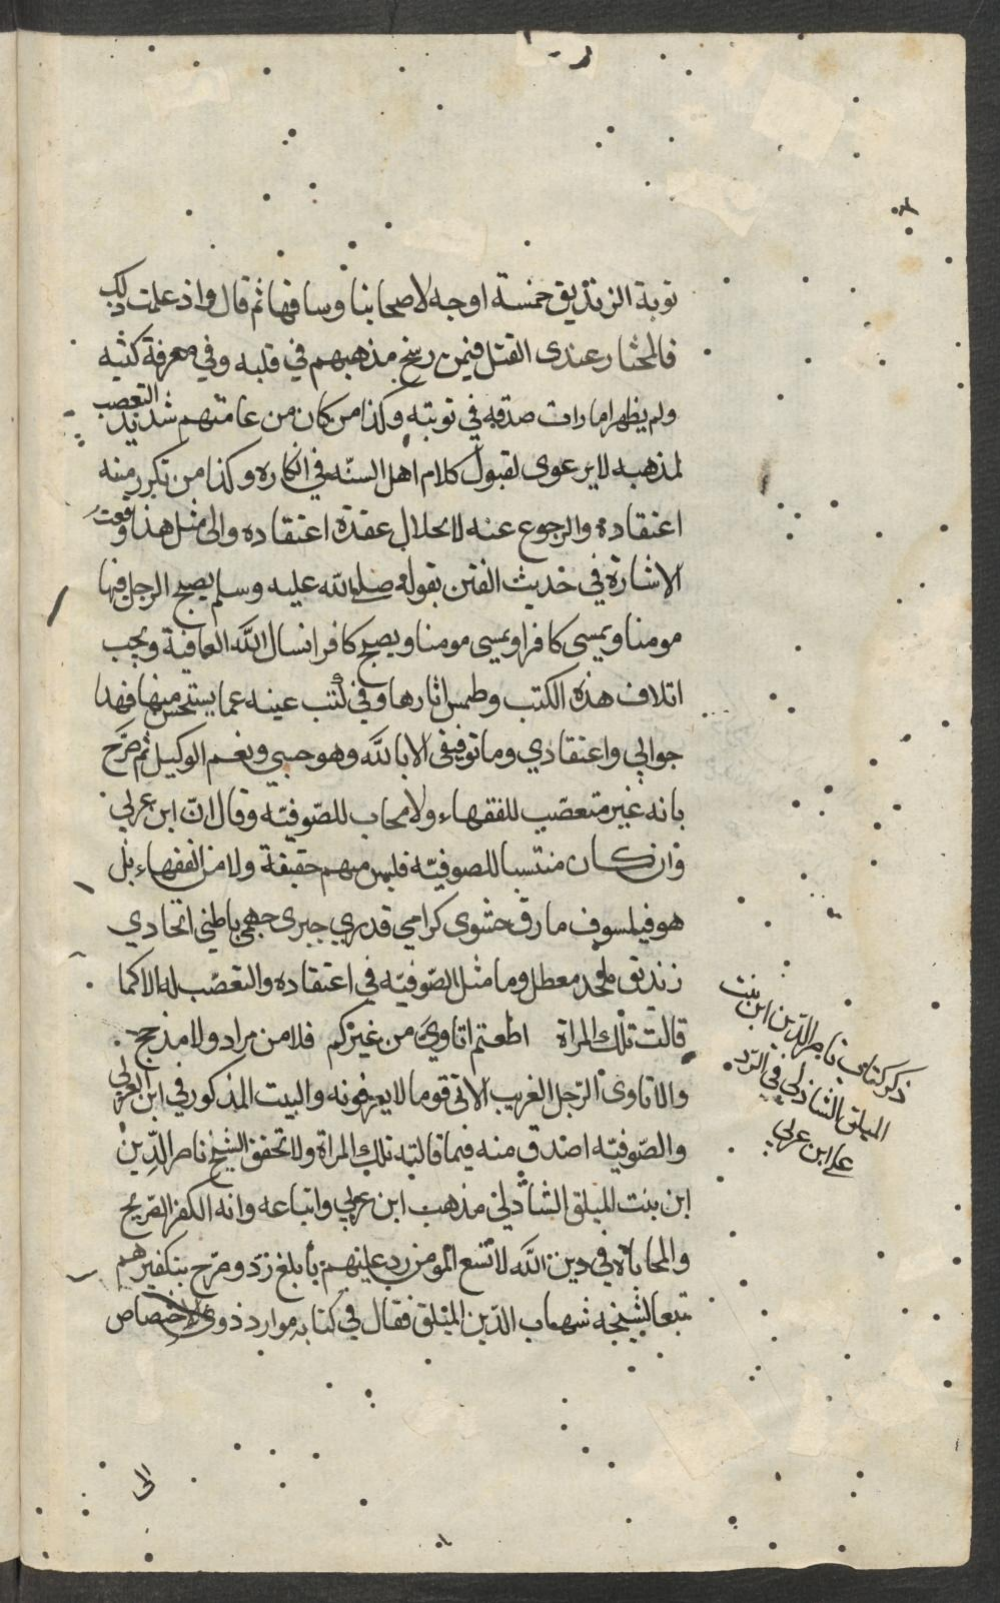 توبة الزنديق خمسة اوجه لاصحابنا وساقها ثم قال واذ علمت ذلك
فالمختار عندى القتل فيمن رسخ مذهبهم في قلبه وفي معرفة كتبه
ولم يظهر امارات صدقه في توبته وكذا من كان من عامتهم شديد التعصب
لمذهبه لا يرعوى لقبول كلام اهل السنّه في انكاره وكذا من تكرر منه
اعتقاده والرجوع عنه لانحلال عقدة اعتقاده والى مثل هذا وقعت
الاشارة في حديث الفتن بقوله صلى الله عليه وسلم يصبح الرجل فيها
مومنا ويمسى كافرا ويمسى مومنا ويصبح كافرا نسال الله العافية ويجب
اتلاف هذه الكتب وطمس اثارها وفي كتب عينه عما يستحسن منها فهذا
جوابي واعتقادي وما توفيقى الا بالله وهو حسبي ونعم الوكيل ثم صرّح
بانه غير متعصّب للفقهاء ولا محاب للصّوفيّه وقال انّ ابن عربي
وان كان منتسبا للصوفيّه فليس منهم حقيقة ولا من الفقهاء بل
هو فيلسوف مارق حشوى كرامي قدري جبرى جهمي باطني اتحادي
زنديق ملحد معطل وما مثل الصّوفيّه في اعتقاده والتعصّب له الا كما
قالت تلك المراة اطعتم اتاوىّ من غيركم فلا من مراد ولا مذحج
والاتاوى الرّجل الغريب الاتى قوما لا يعرفونه والبيت المذكور في ابن العربي
والصّوفيّه اصدق منه فيما قالته تلك المراة ولا تحقق الشيخ ناصر الدّين
ابن بنت الميلق الشاذلي مذهب ابن عربي واتباعه وانه الكفر الصّريح
والمحاباة في دين الله لا تسع المومن رد عليهم بابلغ رد وصرح بتكفيرهم
تبعا لشيخه شهاب الدّين الميلق فقال في كتابه موارد ذوى الاختصاص
ذكر كتاب ناصر الدّين ابن بنت
الميلق الشاذلى في الرّد
على ابن عربي
الى